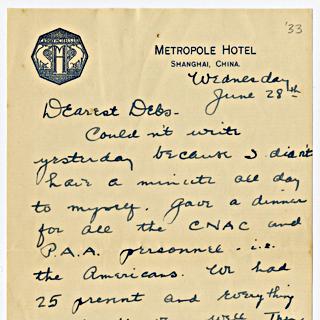 '33
METROPOLE HOTEL
SHANGHAI, CHINA.
Wednesday
June 28th
Dearest Debs-
Could n't write
yesterday because I didn't
have a minute all day
to myself. Gave a dinner
for all the CNAC and
P.A.A. personnel - i.e.
the Americans. We had
25 present and everything
well